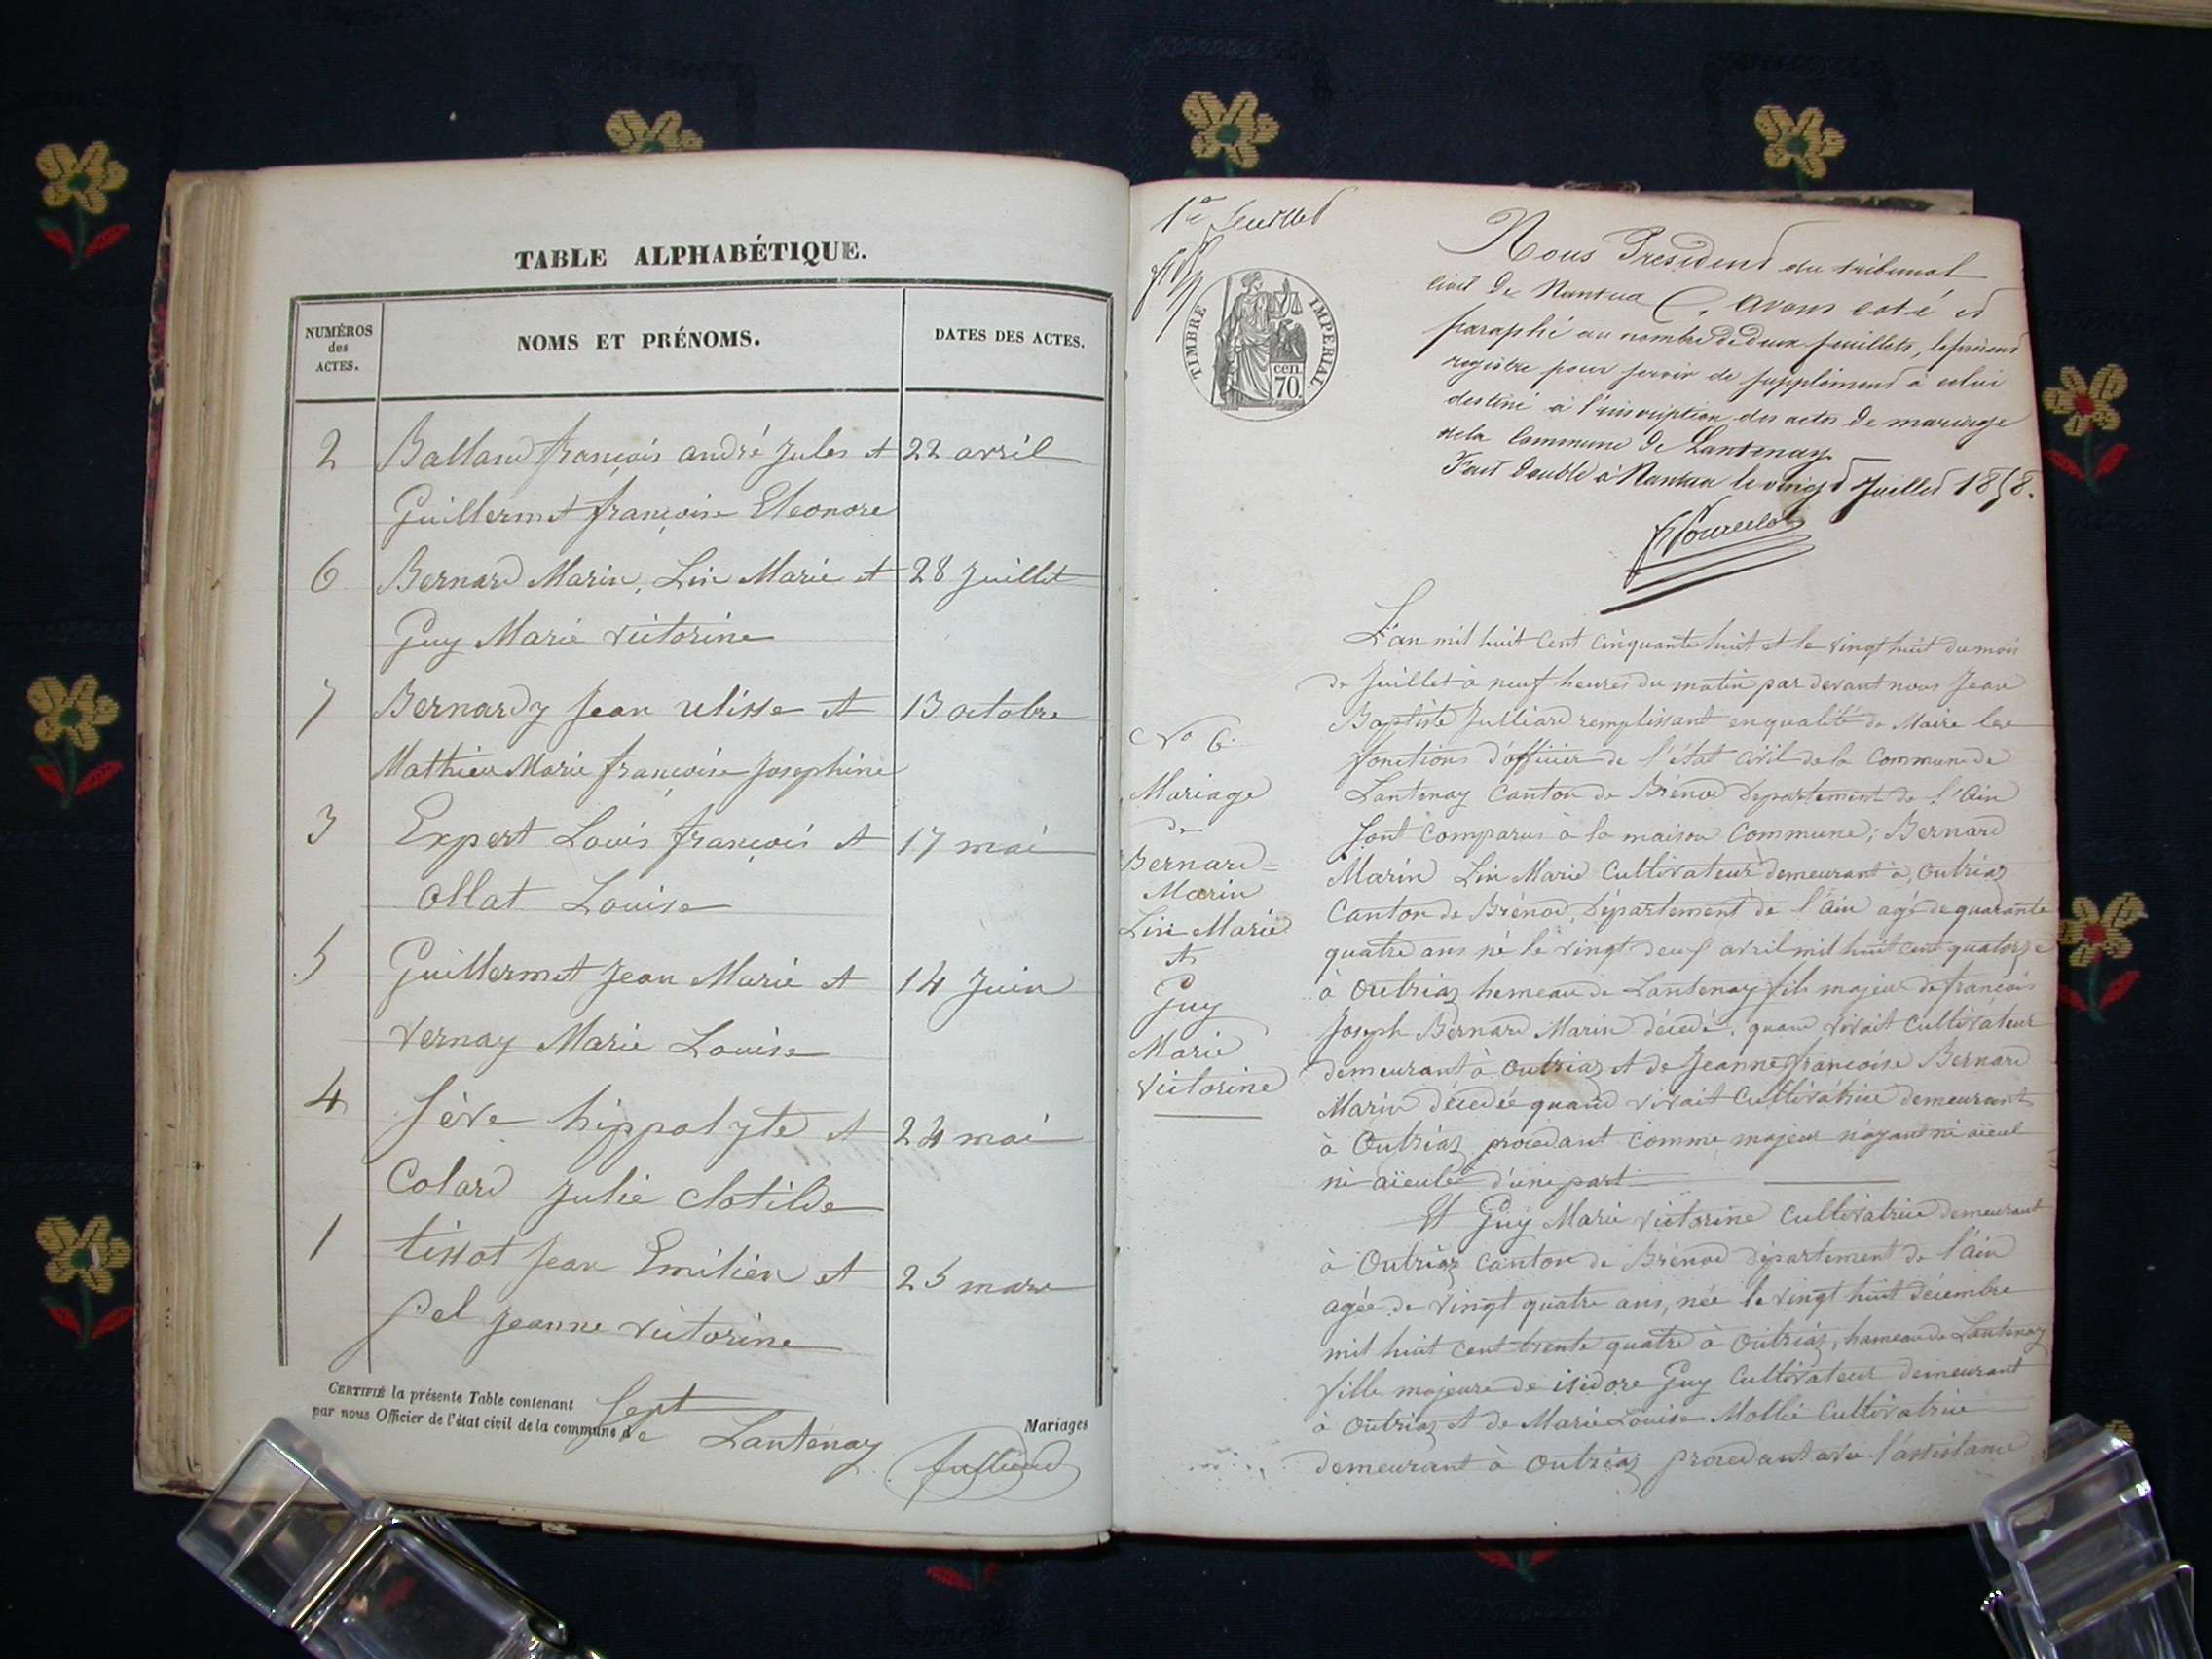 TABLE ALPHABÉTIQUE.
NUMÉROS
des
ACTES.
NOMS ET PRÉNOMS.
DATES DES ACTES.
2 Balland françois andré Jules et 22 avril
Guillermet françoise Eleonore
6 Bernard Marin, Lin Marie et 28 Juillet
Guy Marie victorine
7 Bernardy Jean ulisse et 13 octobre
Mathieu Marie françoise Josephine
3 Expert Louis françois et 17 mai
allat Louise
5 Guillermet Jean Marie et 14 Juin
vernay Marie Louise
4 Sève hippolyte et 24 mai
Colard Julie clotilde
1 tissot Jean Emilien et 25 mars
pel Jeanne victorine
CERTIFIÉ la présente Table contenant Sept Mariages
par nous Officier de l'état civil de la commune de Lantenay
Julliard
1er feuillet
TIMBRE IMPERIAL.
cen.
70.
Nous Président du tribunal
civil De Nantua, avons coté et
paraphé au nombre de deux feuillets, le présent
registre pour servir de supplément à celui
destiné à l'inscription des actes de mariage
de la Commune de Lantenay
Fait Double à Nantua le vingt Juillet 1858.
L'an mil huit Cent Cinquante huit et le vingt huit du mois
de Juillet à neuf heures du matin par devant nous Jean
Baptiste Julliard remplissant en qualité de Maire les
fonctions d'officier de l'état civil de la Commune de
Lantenay Canton de Brénod Département de l'Ain
Sont Comparus à la maison Commune; Bernard
Marin Lin Marie Cultivateur demeurant à, Outriaz
Canton de Brénod, Département de l'Ain agé de quarante
quatre ans né le vingt deux avril mil huit cent quatorze
à Outriaz hameau de Lantenay fils majeur de françois
Joseph Bernard Marin décédé, quand vivait Cultivateur
demeurant à Outriaz et de Jeanne françoise Bernard
Marin décédée quand vivait Cultivatrice demeurant
à Outriaz procedant Comme majeur n'ayant ni aïeul
ni aïeule d'une part
Et Guy Marie victorine Cultivatrice demeurant
à Outriaz Canton de Brénod département de l'Ain
agée de vingt quatre ans, née le vingt huit décembre
mil huit cent trente quatre à Outriaz, hameau de Lantenay
fille majeure de isidore Guy Cultivateur demeurant
à Outriaz et de Marie Louise Mollie Cultivatrice
demeurant à Outriaz procedant avec l'assistance
No 6.
Mariage
de
Bernard=
Marin
Lin Marie
et
Guy
Marie
Victorine